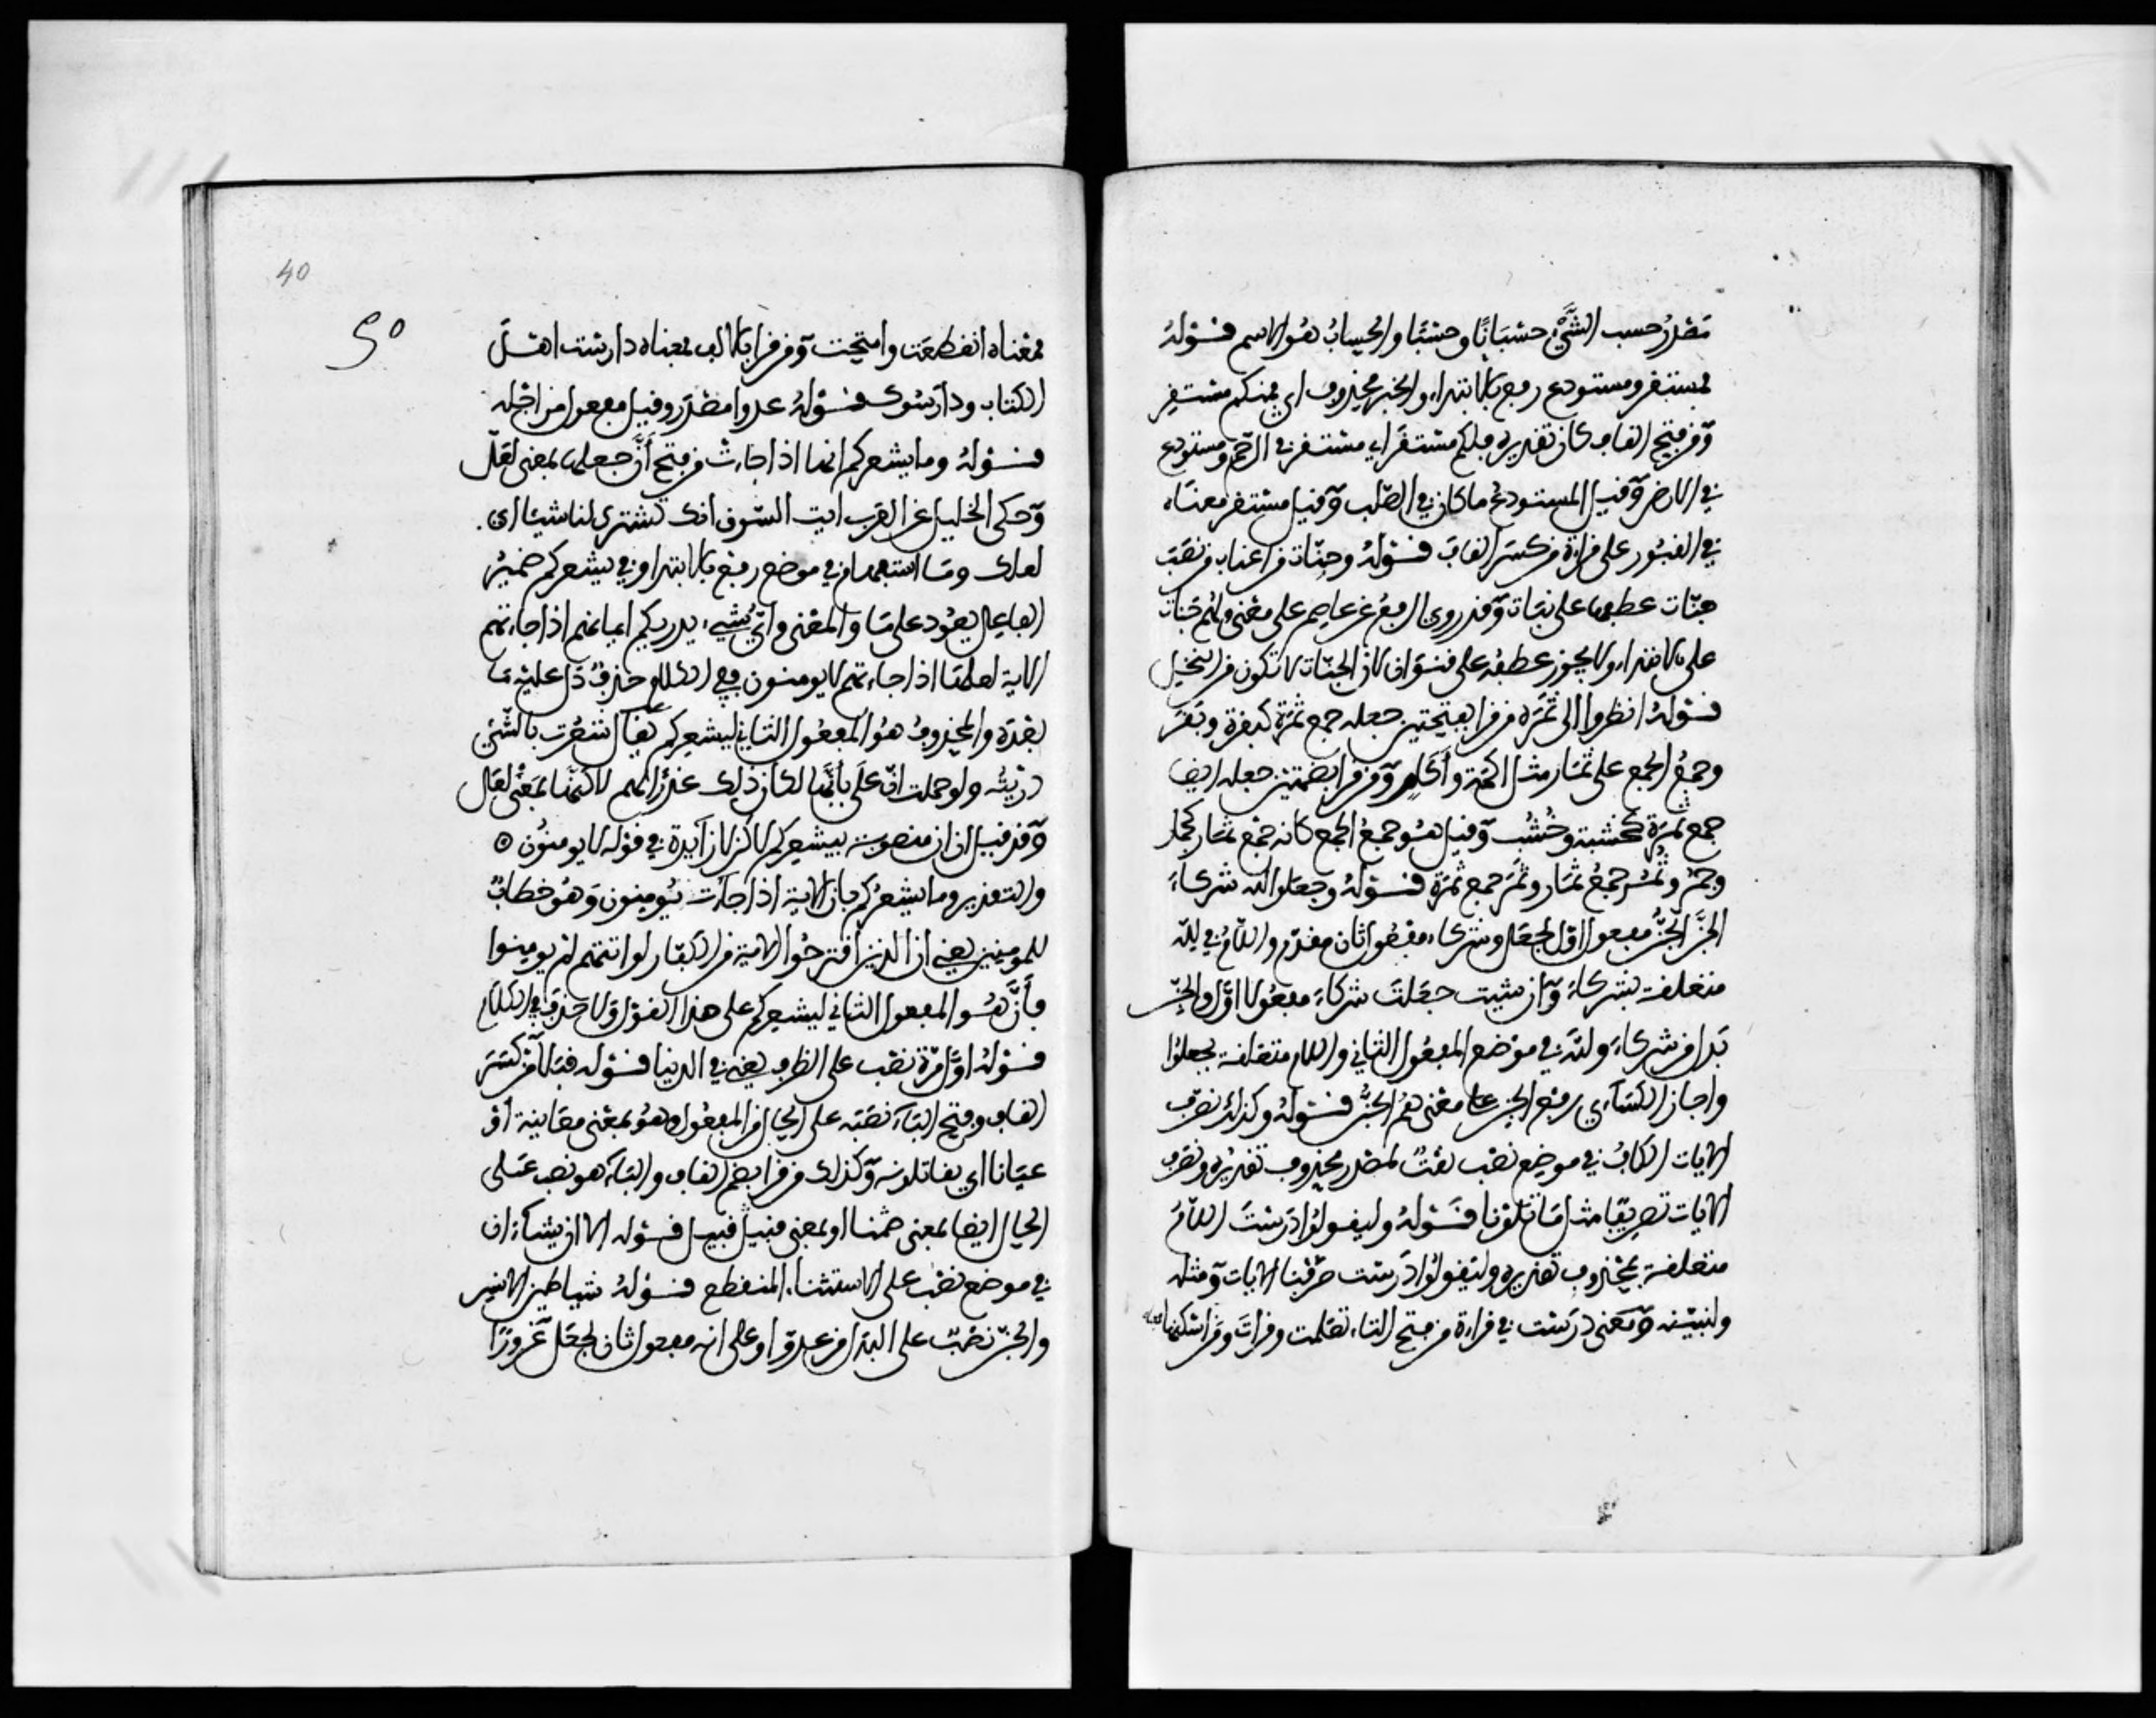 مصدر حسب الشَّيْء حسْبَانًا وحسْبًا والحِسابُ هُو الاسم قوله
فمستقر ومستودع رفع بالابتداء والخبر محذوف اي فمنكم مستقر
وَمن فتح القاف كان تقديره فلكم مستقَر اي مستقر في الرحم ومستودع
في الارض وَقيل المستودع ما كان في الصّلب وَقيل مستقر معناه
في القبور على قراءة من كسر القاف قوله وجنّات من اعناب من نصَبَ
جنّات عطفها على نبات وَقد روي الرفع عن عاصم على معنى ولهم جَنات
على الابتداء ولا يجوز عطفه على قنوان لان الجنّات لا تكون من النخيل
قوله انظروا الى ثمَره من قرا بفتحتين جعله جمع ثمَرَة كبقرة وبَقر
وجمعُ الجمع على ثمَار مثل اكمة وأَكام وَمن قرا بضمتين جعله ايضا
جمع ثمرَة كخشبة وخُشُب وَقيل هو جمعُ الجمع كانه جمْع ثمَار كحمار
وحمر وثُمُر جمعُ ثمَار وثمَر جمع ثمَرَة قوله وجعلوا لله شركاءَ
الجنَّ الجنُّ مفعول اوّل لجعل وشركاء مفعُول ثان مقدّم واللامُ في لله
متعلقة بشركاءَ وَان شيت جعَلتَ شركاءَ مفعُولا اوّل والجنّ
بَدلا من شركاءَ ولله في موْضع المفعُول الثاني واللام متعلقة بجعلوا
واجاز الكسَآءي رفع الجن على معنى هُمُ الجنُّ قوله وكذلك نصرف
الايات الكافُ في موضع نصْب نعْتٌ لمصْدر محذوف تقديْرُه ونصَرف
الايات تصريفًا مثل ما تلَوْنا قوله وليقولوا دَرسْتَ اللامُ
متعلقة بمحْذوف تقديره وليقولوا دَرسْت صَرّفنا الايات وَمثله
ولنبيّنه وَمعْنى درَسْت في قراءة من فتح التاء تعَلمت وقراتَ ومَن اسْكنها
40
50
فمعْناه انقطعَت وامّحت وَمن قرا بالالف فمعناه دارسْت اهْل
الكتاب ودارسُوك قوله عدوا مصْدَر وقيل مفعول من اجْله
قوله وما يشعركم انها اذا جاءت من فتح أنَّ جعلها بمعنى لعَلّ
وَحكى الخليل عن العَرب ايت السّوق انك تشترى لنا شيئا اى
لعلك وما استفهام في موضع رفع بالابتدا وفي يشعركم ضميْرُ
الفاعل يعُود على مَا والمعْنى وايُّ شيء يدريكم ايمانهم اذا جاءتهم
الاية لعلها اذا جاءتهم لا يومنون ففي الكلام حذفٌ دَل عليْه مَا
بعْدَه والمحْذوفُ هُو المفعُول الثاني ليشعركم يقال شعُرت بالشّيء
دريْتُه ولو حملت انّ عَلى بابها لكان ذلك عذْرًا لهم لاكنها بمعْنى لعَل
وَقد قيل ان ان منصوبَة بيشعركم لاكن لا زَايدة في قوْله لا يومنُون ⊙
والتقدير وما يشعُركم بان الاية اذا جاءت يُومنون وَهُو خطابٌ
للمومنين يعْني ان الذين اقترحُوا الاية من الكفّار لو اتتهم لم يومنوا
فأَنَّ هُو المفعول الثاني ليشعركم على هذا القوْل وَلا حذف في الكلام
قوله اوّل مَرّة نصْب على الظرف يعْني في الدنيا قوله قبَلا مَن كسَرَ
القاف وفتح البَآء نصَبَه على الحال من المفعُول وهُو بمعْنى معَاينة أو
عيَانا اي يقابلونه وَكذلك من قرا بضم القاف والبَآء هو نصب عَلى
الحال ايضا بمعنى ضمْنا او بمعنى قبيل قبيل قوله الا ان يشاءَ ان
في موضع نصْب على الاستثناء المنقطع قوله شياطين الانس
والجنّ نصْبٌ على البدَل من عدوّ او على انه مفعول ثان لجعَل غرُورًا